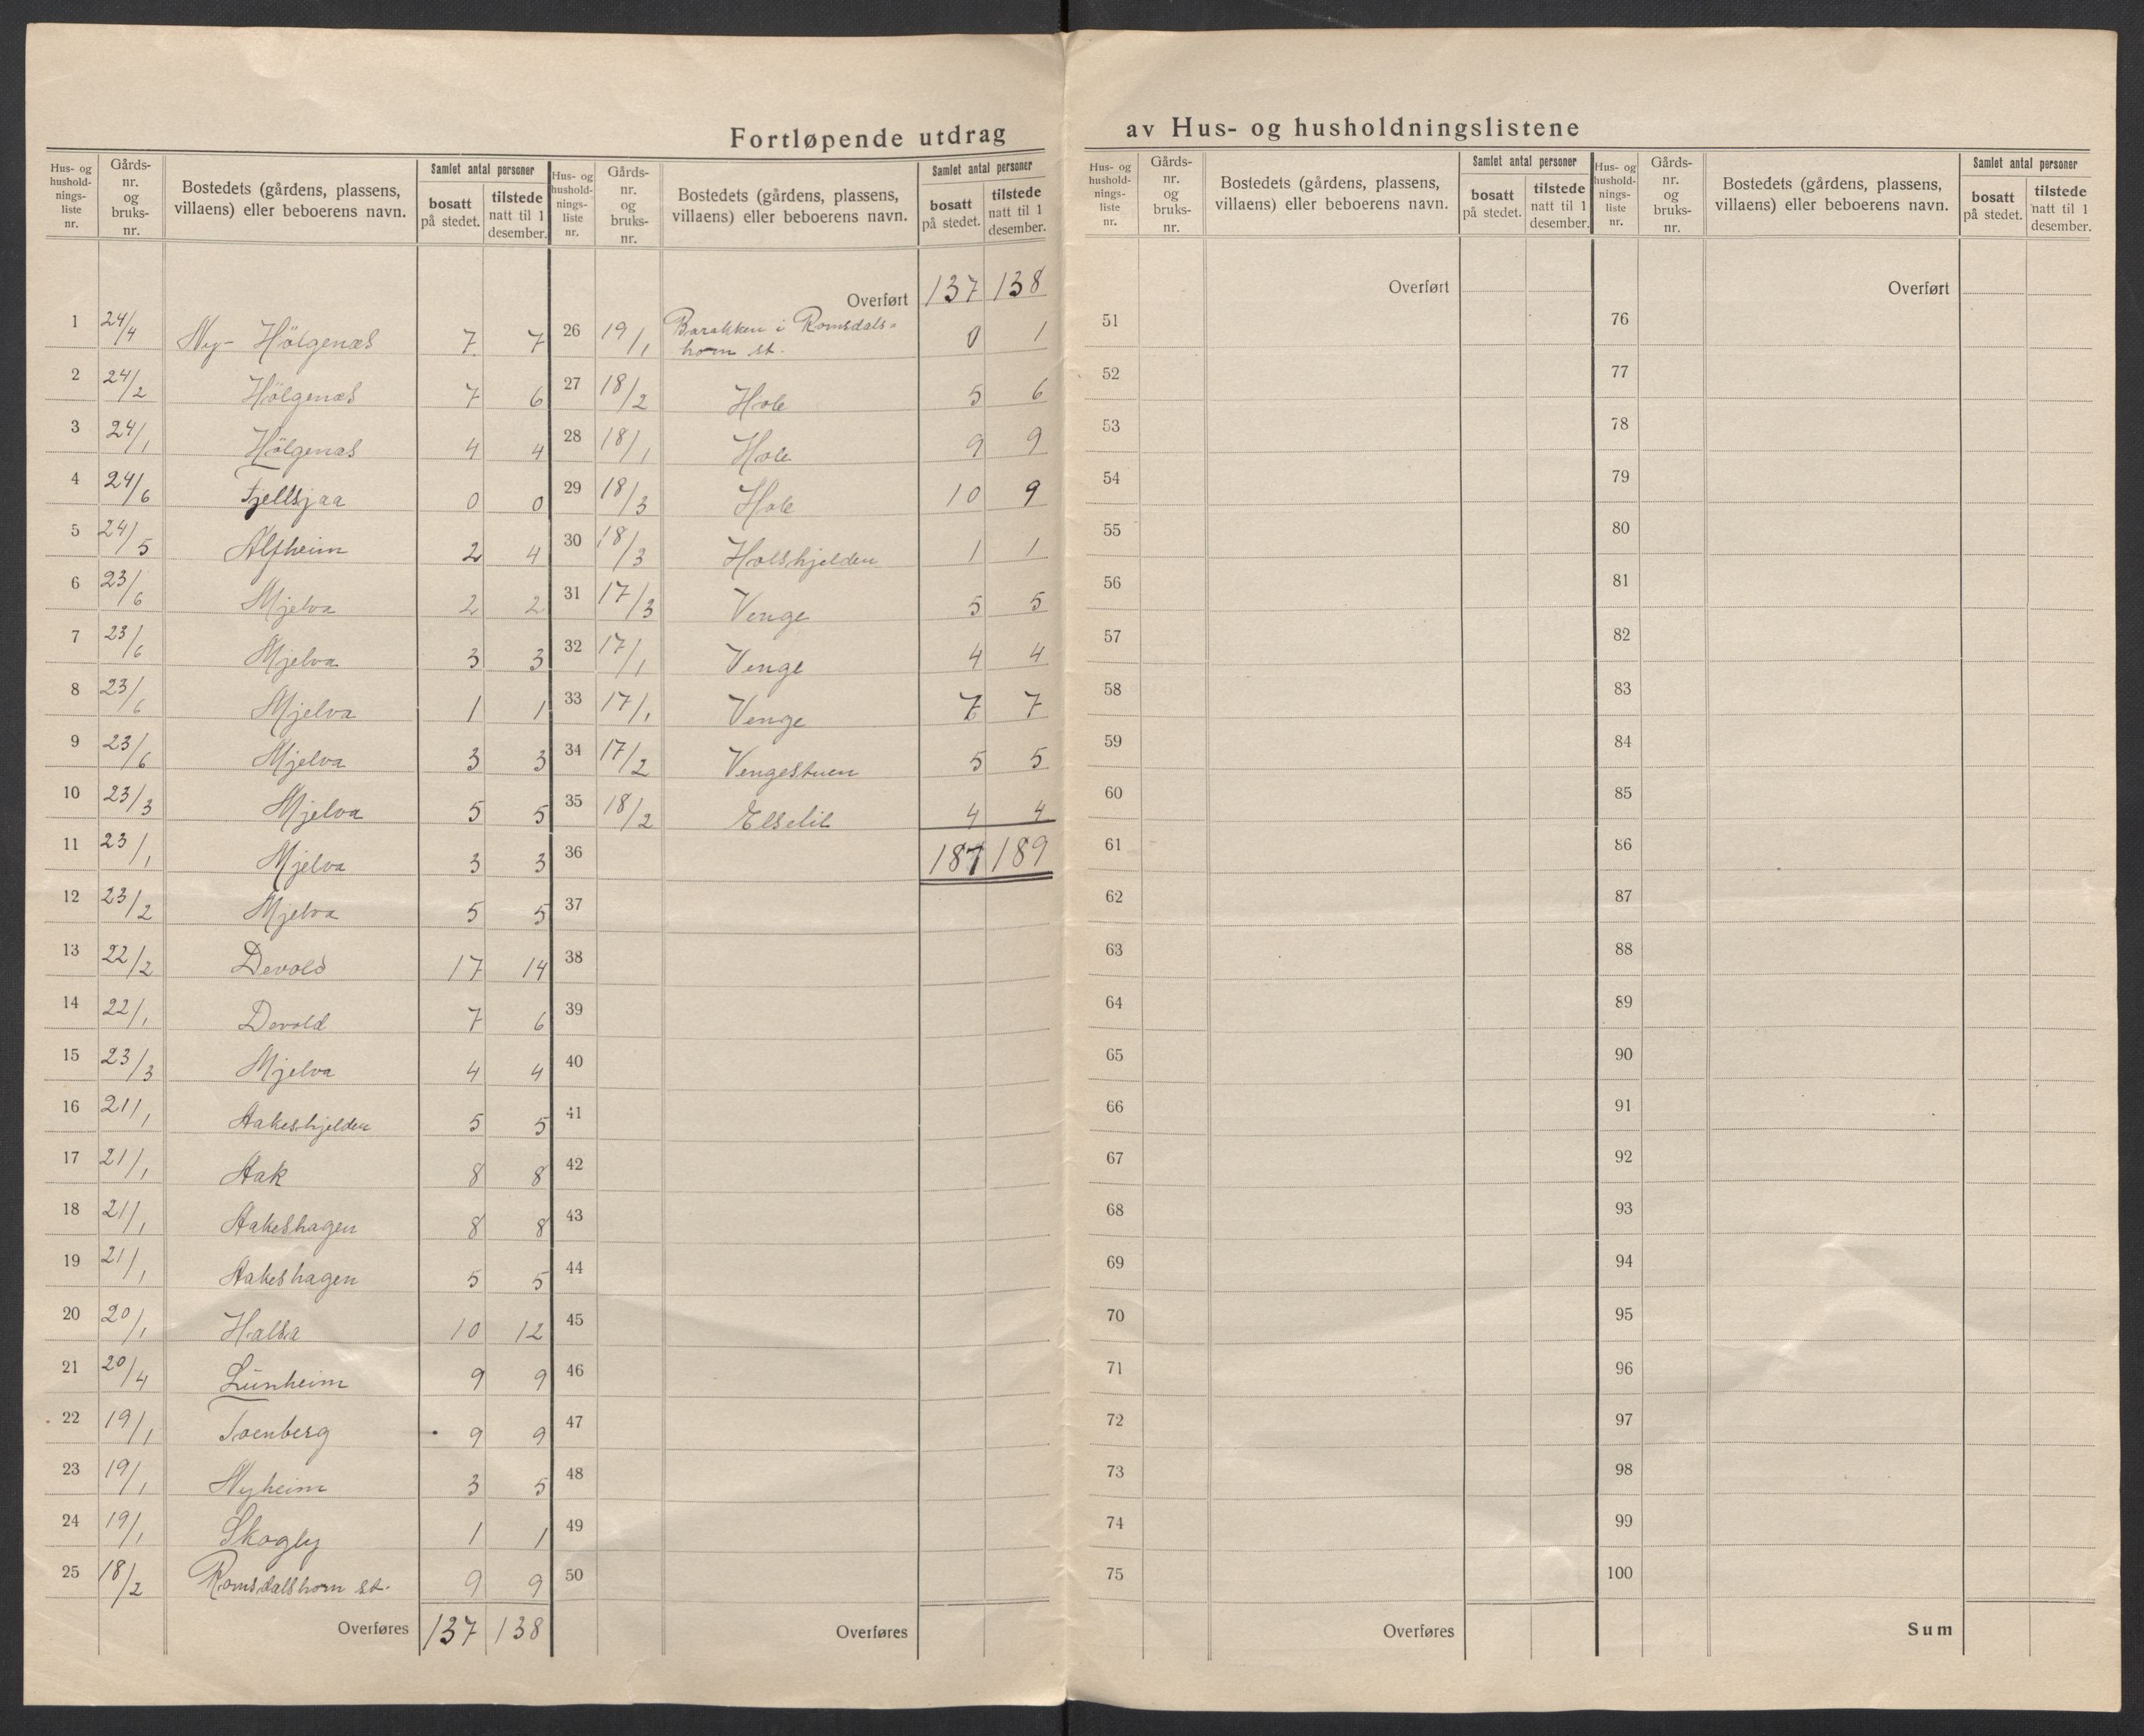 Fortløpende utdrag av Hus- og husholdningslistene
Hus- og hushold-nings-liste nr. | Gårds-nr. og bruks-nr. | Bostedets (gårdens, plassens, villaens) eller beboerens navn. | Samlet antal personer | bosatt på stedet. | tilstede natt til 1 desember.
1 24/4 Ny-Hölgenæs 7 7
2 24/2 Hölgenæs 7 6
3 24/1 Hölgenæs 4 4
4 24/6 Fjellsjaa 0 0
5 24/5 Alfheim 2 4
6 23/6 Mjelva 2 2
7 23/6 Mjelva 3 3
8 23/6 Mjelva 1 1
9 23/6 Mjelva 3 3
10 23/3 Mjelva 5 5
11 23/1 Mjelva 3 3
12 23/2 Mjelva 5 5
13 22/2 Devold 17 14
14 22/1 Devold 7 6
15 23/3 Mjelva 4 4
16 21/1 Aakeshjelden 5 5
17 21/1 Aak 8 8
18 21/1 Aakeshagen 8 8
19 21/1 Aakeshagen 5 5
20 20/1 Halsa 10 12
21 20/4 Lünheim 9 9
22 19/1 9 9
23 19/1 Nyheim 3 5
24 19/1 Skogly 1 1
25 18/2 Romsdalshorn st. 9 9
Overføres 137 138
Hus- og hushold-nings-liste nr. | Gårds-nr. og bruks-nr. | Bostedets (gårdens, plassens, villaens) eller beboerens navn. | Samlet antal personer | bosatt på stedet. | tilstede natt til 1 desember.
Overført 137 138
26 19/1 Barakken i Romsdals-
horn st. 0 1
27 18/2 Hole 5 6
28 18/1 Hole 9 9
29 18/3 Hole 10 9
30 18/3 Holshjelden 1 1
31 17/3 Venge 5 5
32 17/1 Venge 4 4
33 17/1 Venge 7 7
34 17/2 Vengestuen 5 5
35 18/2 Elselil 4 4
36 187 189
37
38
39
40
41
42
43
44
45
46
47
48
49
50
Overføres
Hus- og hushold-nings-liste nr. | Gårds-nr. og bruks-nr. | Bostedets (gårdens, plassens, villaens) eller beboerens navn. | Samlet antal personer | bosatt på stedet. | tilstede natt til 1 desember.
Overført
51
52
53
54
55
56
57
58
59
60
61
62
63
64
65
66
67
68
69
70
71
72
73
74
75
Overføres
Hus- og hushold-nings-liste nr. | Gårds-nr. og bruks-nr. | Bostedets (gårdens, plassens, villaens) eller beboerens navn. | Samlet antal personer | bosatt på stedet. | tilstede natt til 1 desember.
Overført
76
77
78
79
80
81
82
83
84
85
86
87
88
89
90
91
92
93
94
95
96
97
98
99
100
Sum